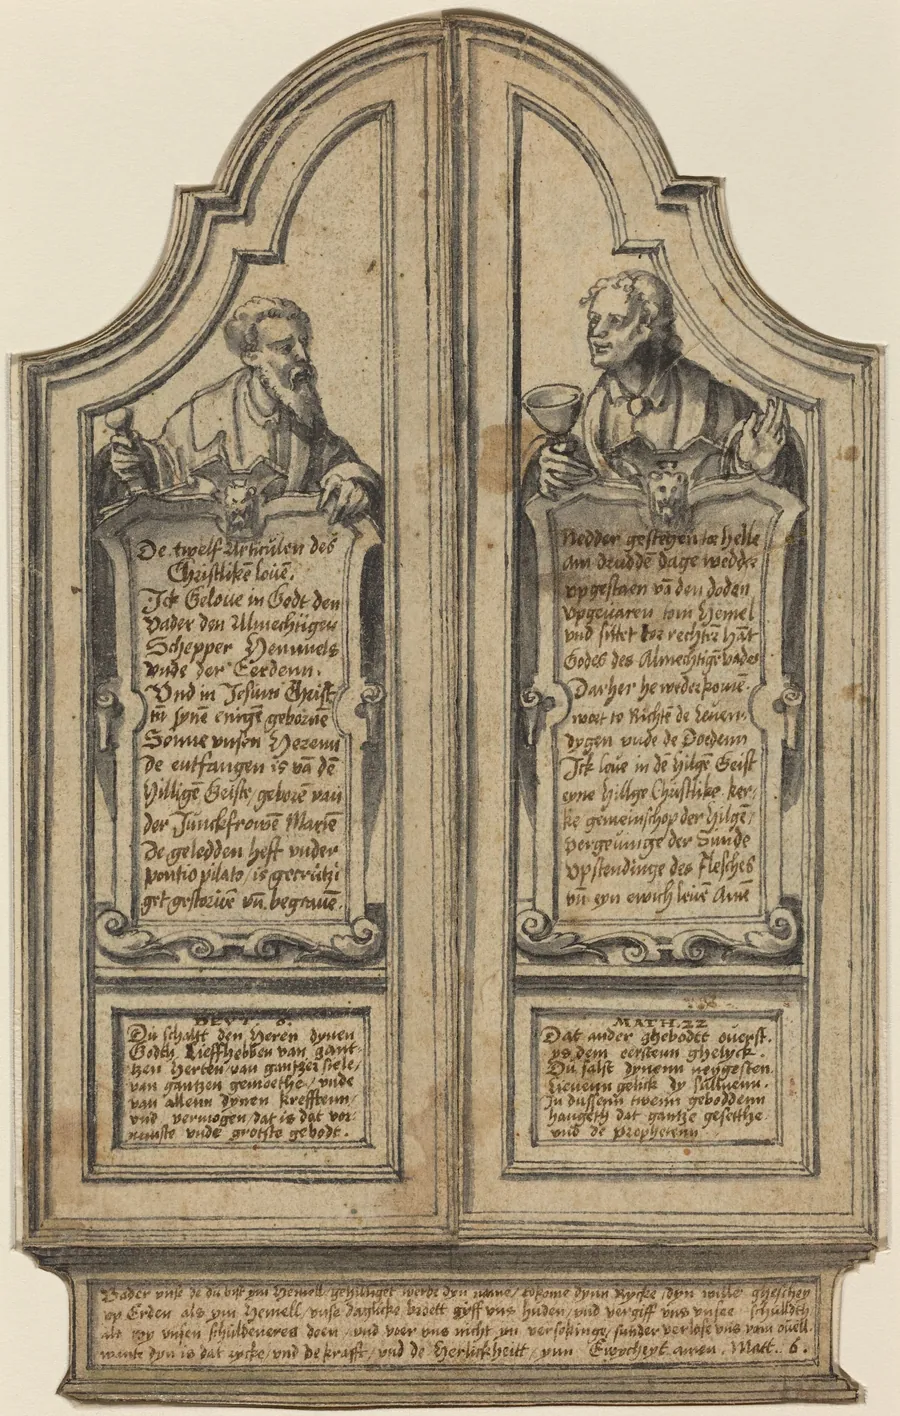 De twelf Articulen des
Christlikē louē.
Ick Geloue in Godt den
Vader den Almechtigen
Schepper Hemmels
vnde der Eerdenn.
Vnd in Jesum Christ
synē enigē gebornē
Sonne vnsen Herenn
de entfangen is vā dē
Hilligē Geiste, geborē van
der Junckfrowē Mariē
De geledden heft vnder
pontio pilato, is gecrutzi
get gestoruē vn̄ begrauē.
Nedder gestegen to helle
am drudde dage wedder
vpgestaen vā den doden
vpgeuaren tom Hemel
vnd sittet tor rechter hāt
Godes des Almechtigē vaders
Darher he wederkomē.
wort to Richtē de leuen-
dygen vnde de Doedenn
Ick loue in dē hilgē Geist
eyne hillge Christlike ker-
ke gemeinschop der hilgē,
vergeuinge der Sunde
vpstendinge des flesches
vn̄ eyn ewich leuē Amē
DEVT. 6.
Du schalt den Heren dynen
Godth Lieffhebben van gant-
tzen Herten, van gantzer siele,
van gantzen gemoethe, vnde
van allenn dynen krefftenn,
vnd vermogen, dat is dat vor-
nemste vnde grotste gebodt.
MATH. 22
Dat ander ghebodtt ouerst.
ys dem eerstenn ghelyck.
Du salst dynenn neygesten
lieuenn gelick dy
In dussenn twenn geboddenn
hangeth dat gantze gesetthe.
vnd de prophetenn
Vader vnse de du bist ynn Hemell, gehilliget werde dyn name, tokome dynn Rycke, dyn wille gheschey
vp Erden als ynn Hemell, vnse daglicke broett gyff vns huden, vnd vergiff vns vnsee schuldth
als wy vnsen schuldeneres doen, vnd voer vns nicht yn versokinge, sunder verlose vns vam ouell.
wante dyn is dat rycke, vnd de krafft, vnd de Herlickheitt, ynn Ewycheyt amen. Matt. 6.